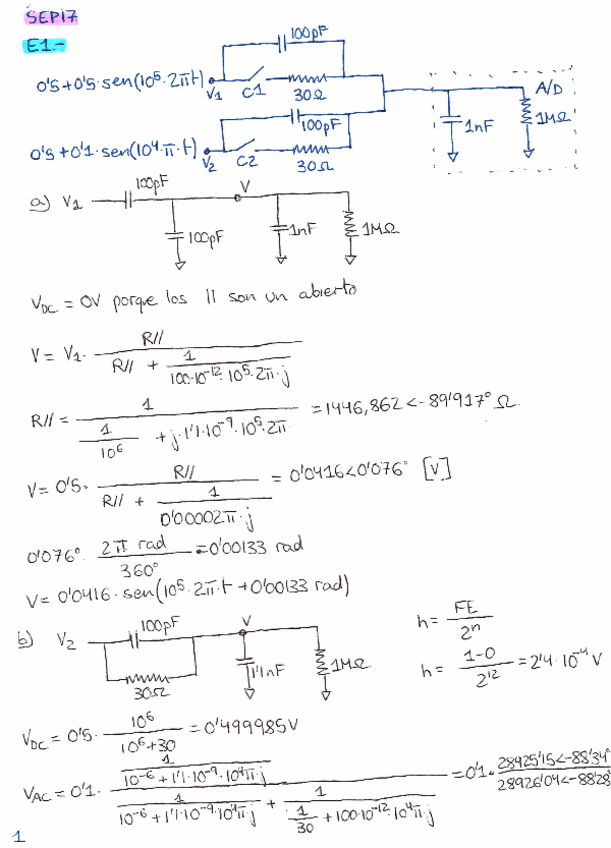 SEP17
E1.-
100pF
0'5+0'5·sen(10⁵·2πt) V1 C1 30Ω
A/D
100pF
1nF 1MΩ
0'5+0'1·sen(10⁴·π·t) V2 C2 30Ω
a) V1 100pF V
100pF 1nF 1MΩ
VDC = 0V porque los || son un abierto
V = V1· R// / (R// + 1/(100·10⁻¹²·10⁵·2π·j))
R// = 1 / (1/10⁶ + j·1'1·10⁻⁹·10⁵·2π) = 1446,862<-89'917° Ω
V = 0'5· R// / (R// + 1/(0'00002π·j)) = 0'0416<0'076° [V]
0'076° · 2π rad / 360° = 0'00133 rad
V = 0'0416·sen(10⁵·2π·t + 0'00133 rad)
b) V2 100pF V
30Ω 1'1nF 1MΩ
h = FE / 2ⁿ
h = (1-0) / 2¹² = 2'4·10⁻⁴ V
VDC = 0'5· 10⁶ / (10⁶+30) = 0'499985V
VAC = 0'1· (1/(10⁻⁶+1'1·10⁻⁹·10⁴π·j)) / (1/(10⁻⁶+1'1·10⁻⁹·10⁴π·j) + 1/(1/30 + 100·10⁻¹²·10⁴π·j)) = 0'1· 28925'15<-88'34° / 28926'04<-88'28°
1